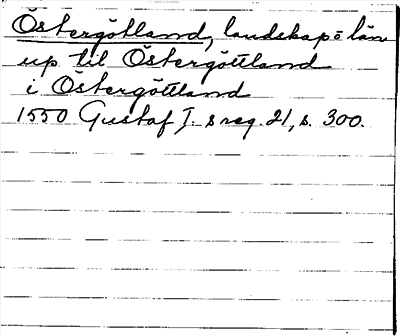 Östergötland, landskap o län
up til Östergöttland
i Östergöttland
1550 Gustaf I. s reg. 21, s. 300.